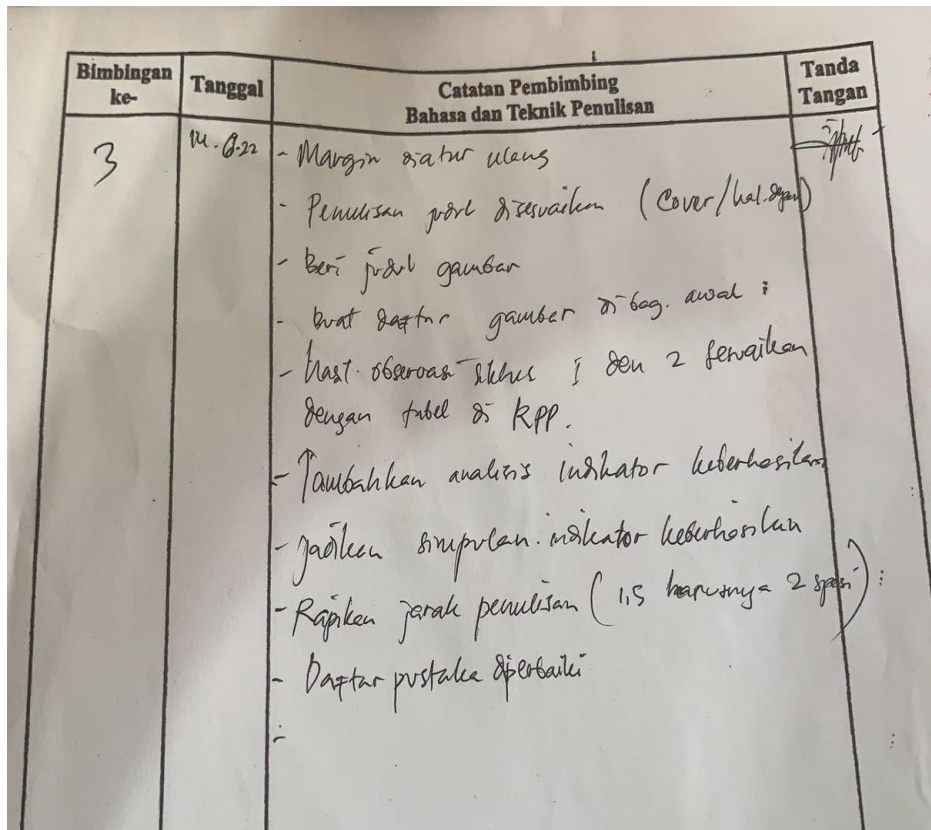 Bimbingan ke-
Tanggal
Catatan Pembimbing
Bahasa dan Teknik Penulisan
Tanda Tangan
3
- Margin diatur ulang
- Penulisan judul disesuaikan (Cover/hal. depan)
- Beri judul gambar
- buat daftar gambar di bag. awal
- Hasil observasi siklus 1 dan 2 sesuaikan
dengan tabel di KPP.
- Tambahkan analisis indikator keberhasilan
- Jadikan simpulan indikator keberhasilan
- Rapikan jarak penulisan (1,5 harusnya 2 spasi)
- Daftar pustaka diperbaiki
-